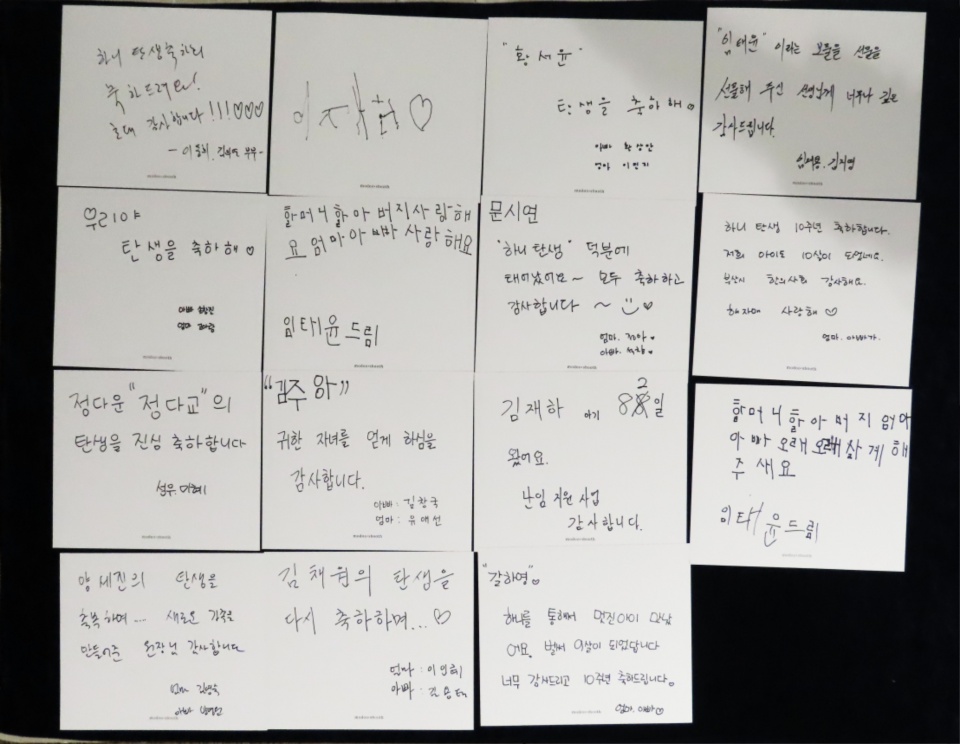 하니 탄생축하리
축하드려요!
감사합니다!!!♡♡♡
부부-
♡
"황서윤"
탄생을 축하해♡
아빠
엄마
"임태윤" 이라는 보물을 선물을
선물해 주신 선생님께 너무나 깊은
감사드립니다.
김지영
우리야
탄생을 축하해♡
아빠
엄마
할머니할아버지사랑해
요 엄마아빠 사랑해요
임태윤드림
문시연
"하니탄생" 덕분에
태어났어요~ 모두 축하하고
감사합니다 ~
엄마.
아빠.
하니 탄생 10주년 축하합니다.
저희 아이도 10살이 되었네요.
부산시 한의사회 감사해요.
사랑해♡
엄마. 아빠가.
정다운 "정다교"의
탄생을 진심 축하합니다
"김주아"
귀한 자녀를 얻게 하심을
감사합니다.
아빠: 김창국
엄마: 유애선
김재하 아기 일
왔어요.
난임 지원 사업
감사합니다.
할머니할아버지엄마
아빠오래오래살게해
주세요
임태윤드림
양세진의 탄생을
축복하며... 새로운 가족을
만들어준 원장님 감사합니다
엄마
아빠
김채원의 탄생을
다시 축하하며...♡
엄마: 이인혜
아빠:
"갈하영"♡
하니를 통해서 멋진아이 만났
어요. 벌써 이 되었답니다
너무 감사드리고 10주년 축하드립니다.
엄마. 아빠♡